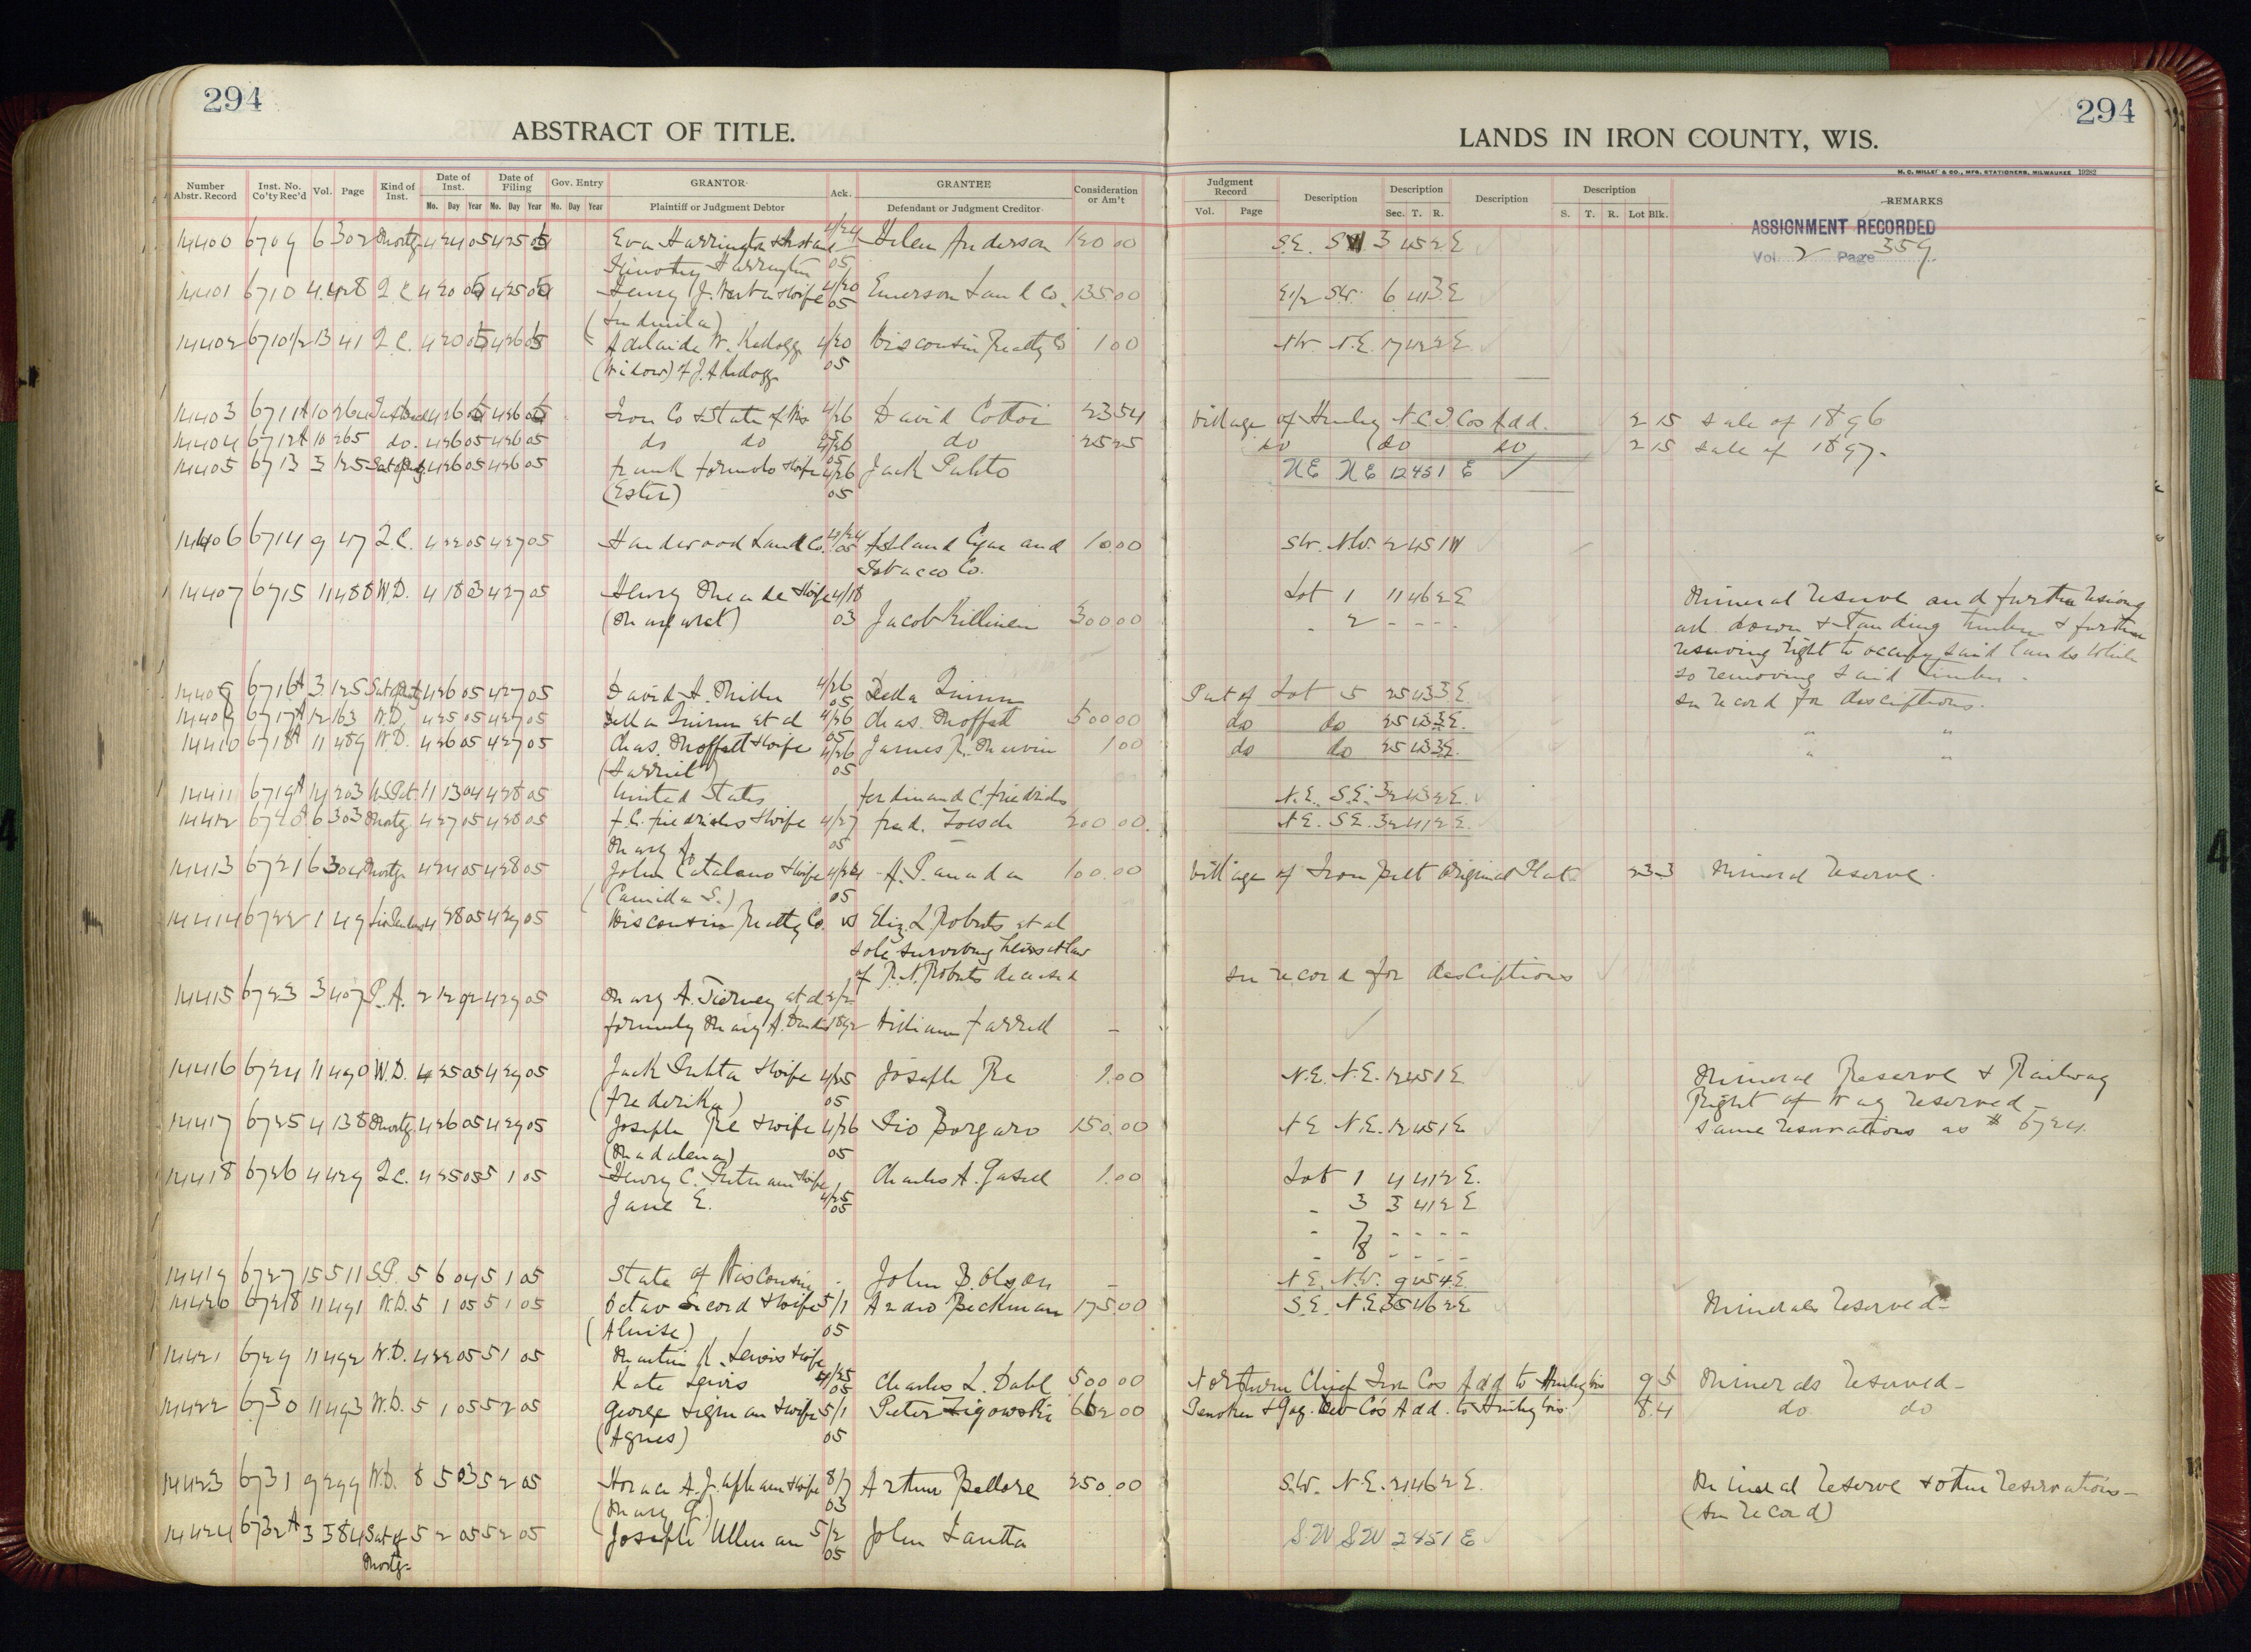 294
294
ABSTRACT OF TITLE.
LANDS IN IRON COUNTY, WIS.
H. C. MILLER & CO., MFG. STATIONERS, MILWAUKEE 19282
Number Abstr. Record Inst. No. Co'ty Rec'd Vol. Page Kind of Inst. Date of Inst. Date of Filing Gov. Entry GRANTOR Ack. GRANTEE Consideration or Am't Judgment Record Description Description Description Description REMARKS
Mo. Day Year Mo. Day Year Mo. Day Year Plaintiff or Judgment Debtor Defendant or Judgment Creditor Vol. Page Sec. T. R. S. T. R. Lot Blk.
ASSIGNMENT RECORDED
Vol. 2 Page 359
14400 6709 6 302 Mortg. 4 24 05 4 25 05 Eva Harrington & husband 4/24 Helen Anderson 120 00 S.E. SW 3 45 2 E
Timothy Harrington 05
14401 6710 4 428 Q.C. 4 20 05 4 25 05 Henry J. & wife 4/20 05 Emerson Land Co. 135 00 E1/2 SW. 6 41 3 E
14402 6710 1/2 13 41 Q.C. 4 20 05 4 26 05 Adelaide W. Kellogg 4/20 Wisconsin Realty Co 1 00 NW N.E. 17 42 2 E.
(Widow) of J. A. Kellogg 05
14403 6711A 10 264 4 26 05 4 26 05 Iron Co & State of Wis 4/26 David Cottoi 23 54 Village of Hurley N.C.I. Cos Add. 2 15 Sale of 1896
14404 6712A 10 265 do. 4 26 05 4 26 05 do do 4/26 do 25 25 do do do 2 15 Sale of 1897.
14405 6713 3 125 4 26 05 4 26 05 Frank Formolo & wife 4/26 Jack Puhto NE NE 12 45 1 E
(Ester) 05
14406 6714 9 47 Q.C. 4 22 05 4 27 05 Hardwood Land Co. 4/24 05 Ashland Cigar and 10.00 SW. NW. 2 45 1 W
Tobacco Co.
14407 6715 11 488 W.D. 4 18 03 4 27 05 Henry Meade & wife 4/18 Lot 1 11 46 2 E Mineral Reserve and further
(Margaret) 03 Jacob Killinen 300 00 " 2 - - - all down & standing timber & further
reserving right to occupy said lands while
so removing said timber.
14408 6716A 3 125 4 26 05 4 27 05 David A. Miller 4/26 05 Della Quinn Part of Lot 5 25 43 3 E See record for desciptions.
14409 6717A 12 163 W.D. 4 25 05 4 27 05 Della Quinn et al 4/26 05 Chas. Moffatt 500 00 do do 25 43 3 E. " "
14410 6718A 11 489 W.D. 4 26 05 4 27 05 Chas. Moffatt & wife 4/26 James R. Marvin 1 00 do do 25 43 3 E. " "
(Harriet) 05
14411 6719A 14 203 U.S. Pat. 11 13 04 4 28 05 United States Ferdinand C. Friedrichs N.E. S.E. 32 43 2 E.
14412 6720A 6 303 Mortg 4 27 05 4 28 05 F. C. Friedrichs & wife 4/27 Fred. Zoesch 200 00 N.E. S.E. 32 41 2 E.
Mary A. 05
14413 6721 6 304 Mortg. 4 24 05 4 28 05 John Catalano & wife 4/24 A. Panada 100.00 Village of Iron Belt Original Plat 23 3 Mineral Reserve.
(Camida S.) 05
14414 6722 1 49 4 28 05 4 29 05 Wisconsin Realty Co. vs Eliz. L. Roberts et al
sole surviving heirs at law
of R. N. Roberts deceased See record for desciptions
14415 6723 3 407 P.A. 2 12 92 4 29 05 Mary A. Tierney et al
formerly Mary A. 1892 William Farrell —
14416 6724 11 490 W.D. 4 25 05 4 29 05 Jack Puhta & wife 4/25 Joseph Re 1.00 N.E. N.E. 12 45 1 E. Mineral Reserve & Railway
(Frederika) 05 Right of Way Reserved—
14417 6725 4 138 Mortg. 4 26 05 4 29 05 Joseph Re & wife 4/26 Pio Borgaro 150.00 NE N.E. 12 45 1 E Same reservations as # 6724.
(Madalena) 05
14418 6726 4 429 Q.C. 4 25 05 5 1 05 Henry C. Putnam & wife Charles A. 1.00 Lot 1 4 41 2 E.
Jane E. 4/25 05 " 3 3 41 2 E
" 7 - - - -
" 8 - - - -
14419 6727 15 511 S.P. 5 6 04 5 1 05 State of Wisconsin John B. Olson — N.E. N.W. 9 45 4 E.
14420 6728 11 491 W.D. 5 1 05 5 1 05 Octav Secord & wife 5/1 Andro Beckman 175.00 S.E. N.E. 35 46 2 E Minerals reserved—
(Alvise) 05
14421 6729 11 492 W.D. 4 22 05 5 1 05 Martin K. Lewis & wife
Kate Lewis 4/25 05 Charles L. Dahl 500 00 Northern Chief Iron Cos Add to Hurley Wis 9 5 Minerals reserved—
14422 6730 11 493 W.D. 5 1 05 5 2 05 George Sigman & wife 5/1 Pieter Zigowski 662 00 Penokee & Gog. Dev Co's Add. to Hurley Wis. 8 4 do do
(Agnes) 05
14423 6731 9 299 W.D. 8 5 03 5 2 05 Horace A. J. Upham & wife 8/7 Arthur Bellore 250.00 S.W. N.E. 21 46 2 E. Mineral Reserve & other reservations—
(Mary G.) 03 (See record)
14424 6732A 3 384 Sat of 5 2 05 5 2 05 Joseph Ullman 5/2 John Lantta S.W S.W 2 45 1 E
Mortg. 05